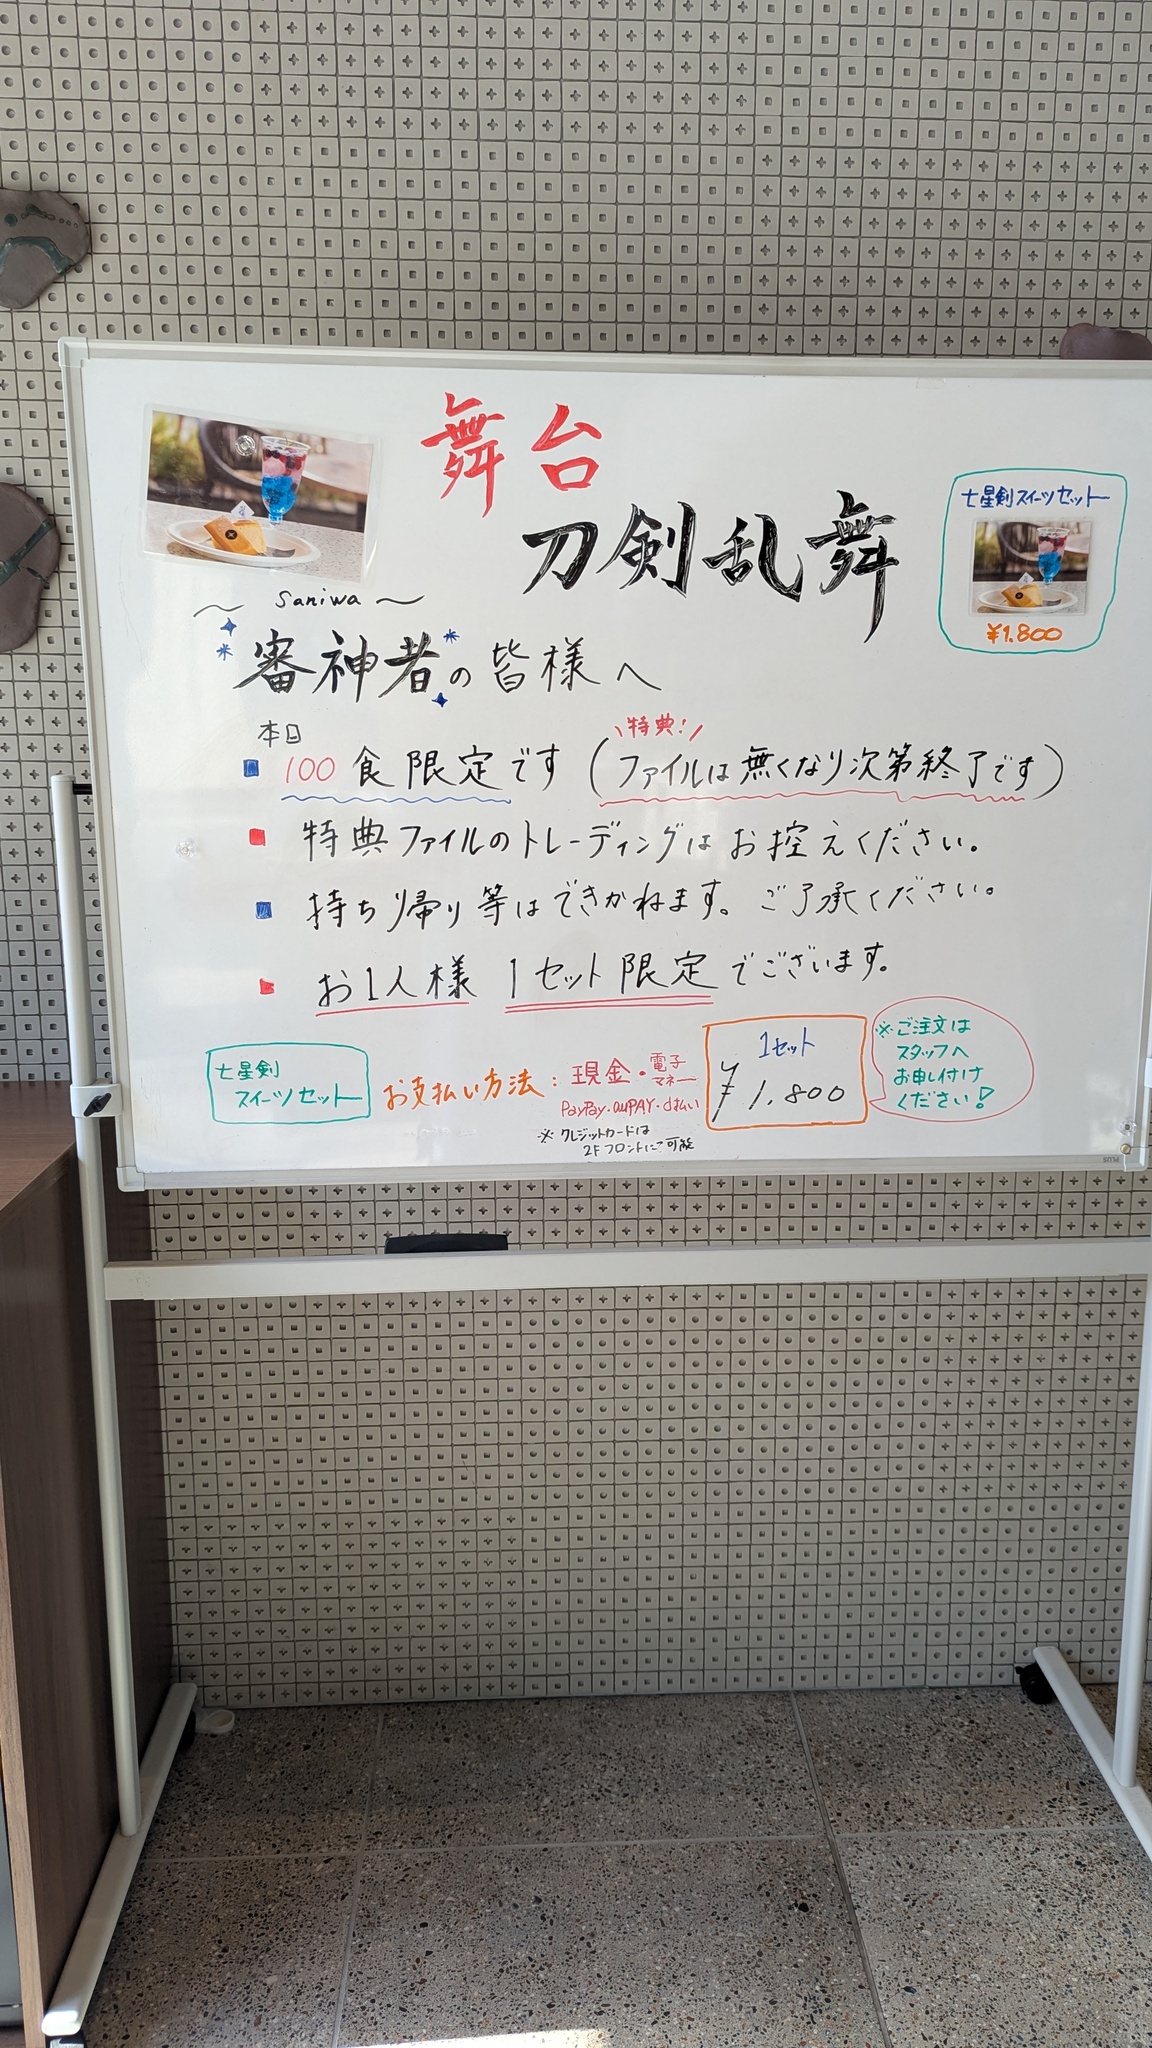 舞台
刀剣乱舞
七星剣スイーツセット
¥1.800
~ Saniwa ~
審神者の皆様へ
本日
100食限定です
\特典!/
(ファイルは無くなり次第終了です)
特典ファイルのトレーディングはお控えください。
持ち帰り等はできかねます。ご了承ください。
お1人様 1セット限定でございます。
七星剣
スイーツセット
お支払い方法:現金・電子マネー
PayPay・auPAY・d払い
※クレジットカードは
2Fフロントにて可能
1セット
¥1.800
※ご注文は
スタッフへ
お申し付け
ください!
PLUS